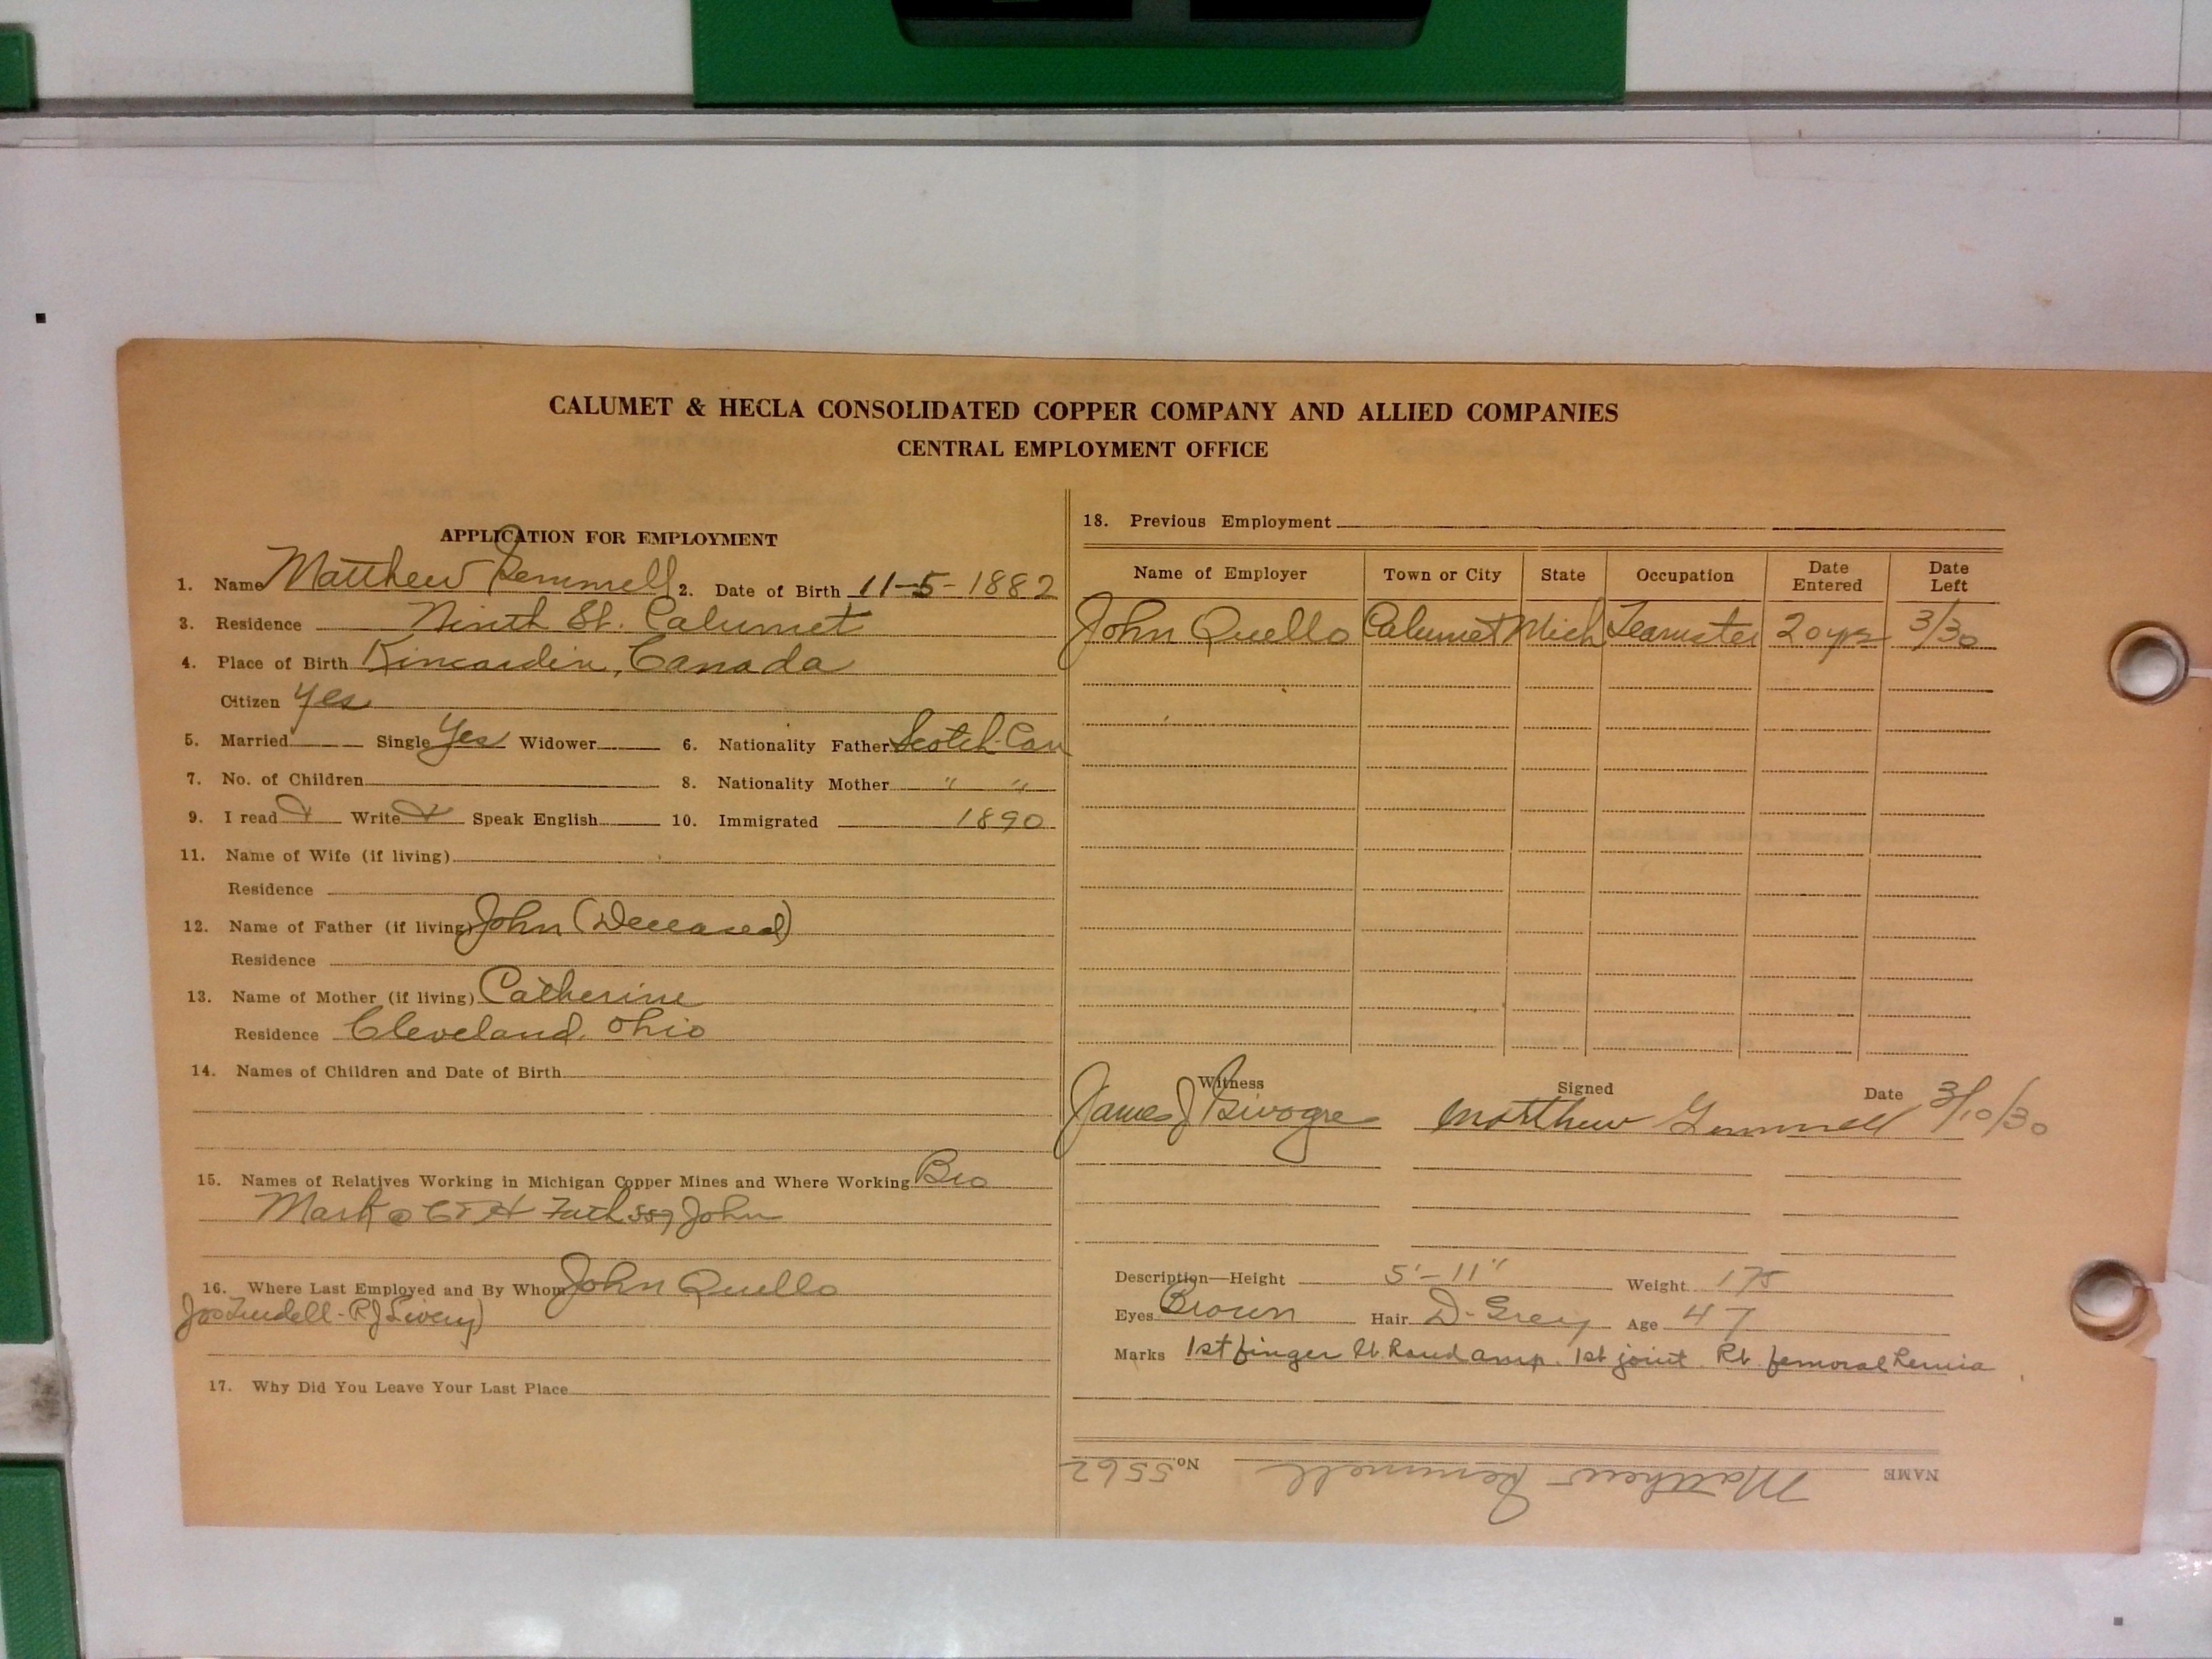 CALUMET & HECLA CONSOLIDATED COPPER COMPANY AND ALLIED COMPANIES
CENTRAL EMPLOYMENT OFFICE
APPLICATION FOR EMPLOYMENT
1. Name Matthew Gemmell 2. Date of Birth 11-5-1882
3. Residence Ninth St. Calumet
4. Place of Birth Kincardin, Canada
Citizen Yes
5. Married Single Yes Widower 6. Nationality Father Scotch-Can
7. No. of Children 8. Nationality Mother " "
9. I read Write Speak English 10. Immigrated 1890
11. Name of Wife (if living)
Residence
12. Name of Father (if living) John (Deceased)
Residence
13. Name of Mother (if living) Catherine
Residence Cleveland, Ohio
14. Names of Children and Date of Birth
15. Names of Relatives Working in Michigan Copper Mines and Where Working Bro
Mark @ C & H John
16. Where Last Employed and By Whom John Quello
17. Why Did You Leave Your Last Place
18. Previous Employment
Name of Employer Town or City State Occupation Date Entered Date Left
John Quello Calumet Mich Teamster 20 yrs 3/30
Witness Signed Date
James J Matthew Gemmell 3/10/30
Description—Height 5'-11" Weight 175
Eyes Brown Hair D-Grey Age 47
Marks 1st finger Lt hand amp. 1st joint. Rt. femoral hernia
NAME Matthew Gemmell No. 5562